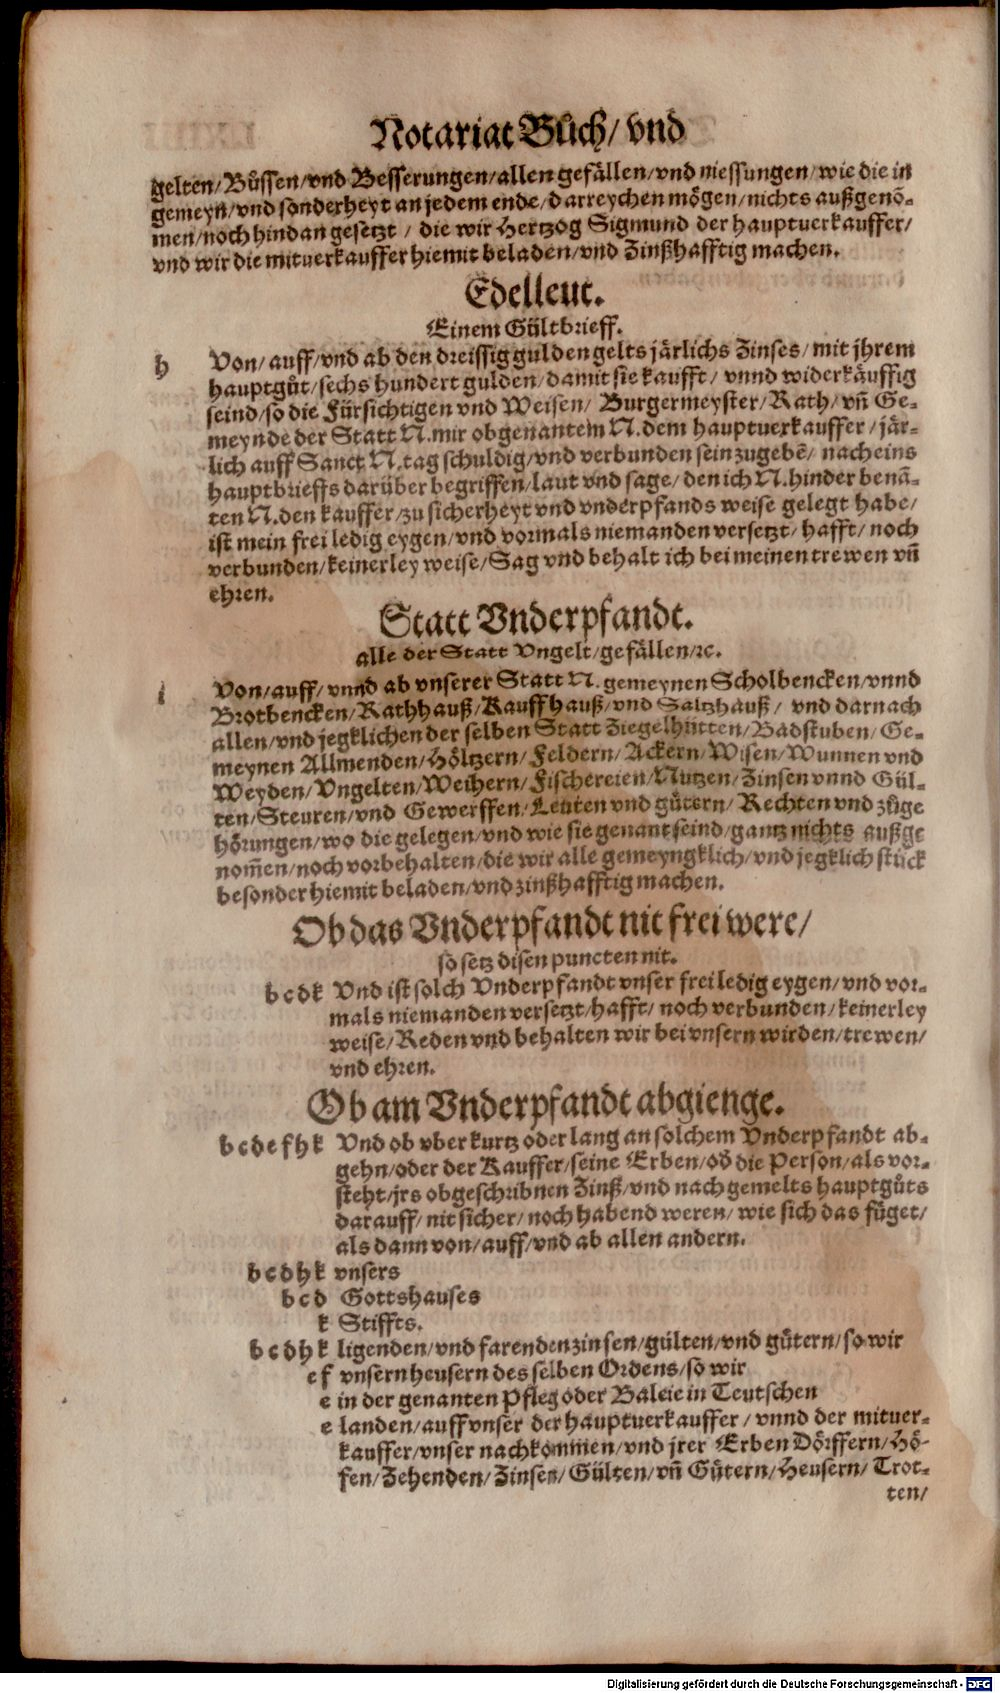 Notariat Bůch/ vnd
gelten/Bůssen/vnd Besserungen/allen gefällen/vnd niessungen/wie die in
gemeyn/vnd sonderheyt an jedem ende/darreychen mögen/nichts außgenō-
men/noch hindan gesetzt / die wir Hertzog Sigmund der hauptuerkauffer/
vnd wir die mituerkauffer hiemit beladen/vnd Zinßhafftig machen.
Edelleut.
Einem Gültbrieff.
h Von/ auff/vnd ab den dreissig gulden gelts järlichs Zinses/ mit jhrem
hauptgůt/sechs hundert gulden/damit sie kaufft/ vnnd widerkäuffig
seind/so die Fürsichtigen vnd Weisen/ Burgermeyster/Rath/ vñ Ge-
meynde der Statt N.mir obgenantem N.dem hauptuerkauffer/jär-
lich auff Sanct N.tag schuldig/vnd verbunden sein zugebē/ nach eins
hauptbrieffs darüber begriffen/laut vnd sage/den ich N.hinder benā-
ten N.den kauffer/zu sicherheyt vnd vnderpfands weise gelegt habe/
ist mein frei ledig eygen/vnd vormals niemanden versetzt/hafft/noch
verbunden/keinerley weise/Sag vnd behalt ich bei meinen trewen vñ
ehren.
Statt Vnderpfandt.
alle der Statt Vngelt/gefällen/ꝛc.
i Von/auff/vnnd ab vnserer Statt N. gemeynen Scholbencken/vnnd
Brotbencken/Rathhauß/Kauffhauß/vnd Saltzhauß/ vnd darnach
allen/vnd jegklichen der selben Statt Ziegelhütten/Badstuben/Ge-
meynen Allmenden/Höltzern/Feldern/Ackern/Wisen/Wunnen vnd
Weyden/Vngelten/Weihern/Fischereien/Nutzen/Zinsen vnnd Gül-
ten/Steuren/vnd Gewerffen/Leuten vnd gütern/Rechten vnd zůge
hörungen/wo die gelegen/vnd wie sie genant seind/gantz nichts außge
nom̄en/noch vorbehalten/die wir alle gemeyngklich/vnd jegklich stück
besonder hiemit beladen/vnd zinßhafftig machen.
Ob das Vnderpfandt nit frei were/
so setz disen puncten nit.
b c d k Vnd ist solch Vnderpfandt vnser frei ledig eygen/vnd vor-
mals niemanden versetzt/hafft/ noch verbunden/keinerley
weise/Reden vnd behalten wir bei vnsern wirden/trewen/
vnd ehren.
Ob am Vnderpfandt abgienge.
b c d e f h k Vnd ob vber kurtz oder lang an solchem Vnderpfandt ab-
gehn/oder der Kauffer/seine Erben/od̄ die Person/als vor-
steht/jrs obgeschribnen Zinß/vnd nachgemelts hauptgůts
darauff/nit sicher/noch habend weren/wie sich das füget/
als dann von/auff/vnd ab allen andern.
b c d h k vnsers
b c d Gottshauses
k Stiffts.
b c d h k ligenden/vnd farenden zinsen/gülten/vnd gütern/so wir
e f vnsern heusern des selben Ordens/so wir
e in der genanten Pfleg oder Baleie in Teutschen
e landen/auff vnser der hauptuerkauffer/ vnnd der mituer-
kauffer/vnser nachkommen/vnd jrer Erben Dörffern/Hö-
fen/Zehenden/Zinsen/Gülten/vñ Gütern/Heusern/Trot-
ten/
Digitalisierung gefördert durch die Deutsche Forschungsgemeinschaft - DFG